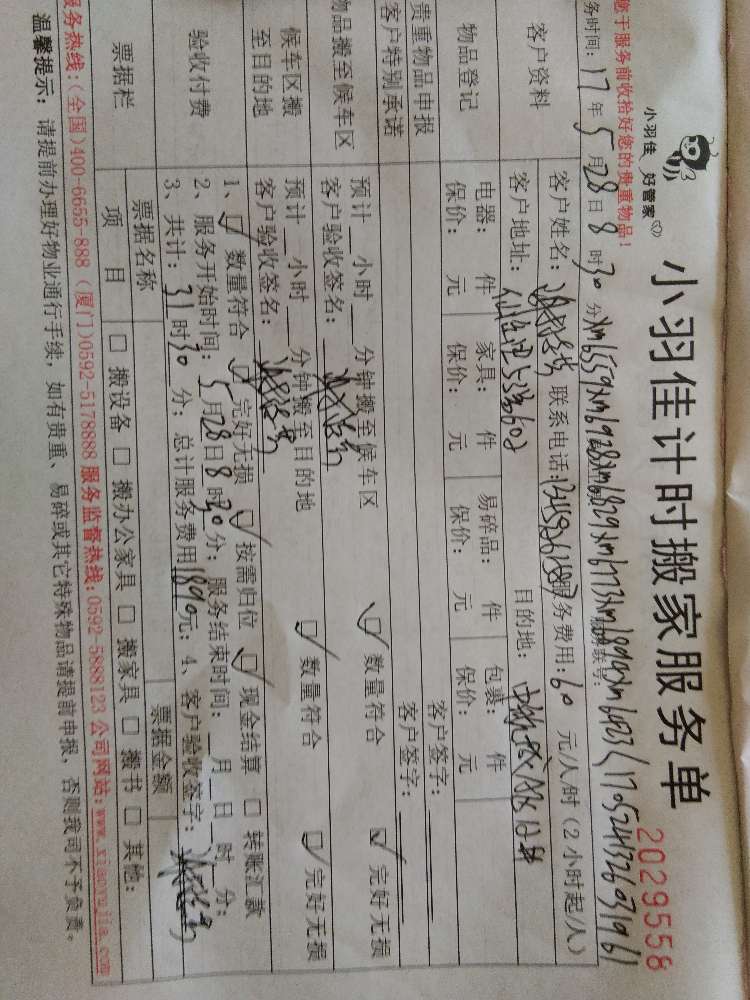 小羽佳 好管家
小羽佳计时搬家服务单
2029558
您于服务前收拾好您的贵重物品！
务时间：17年5月28日8时30分
客户资料
客户姓名： 联系电话： 服务费用：60元/人/时（2小时起/人）
客户地址： 目的地：
物品登记
电器： 件 家具： 件 易碎品： 件 包裹： 件
保价： 元 保价： 元 保价： 元 保价： 元
贵重物品申报 客户签字：
客户特别承诺 客户签字：
物品搬至候车区
预计__小时__分钟搬至候车区 数量符合 完好无损
客户验收签名：
候车区搬至目的地
预计__小时__分钟搬至目的地 数量符合 完好无损
客户验收签名：
验收付费
1、☑数量符合 ☑完好无损 ☑按需归位 ☑现金结算 □转账汇款
2、服务开始时间：5月28日8时30分；服务结束时间：__月__日__时__分；
3、共计：31时30分；总计服务费用1890元；4、客户验收签字：
票据栏
票据名称 票据金额
项目 □搬设备 □搬办公家具 □搬家具 □搬书 □其他：
服务热线：(全国)400-6655-888 (厦门)0592-5178888 服务监督热线：0592-5888123 公司网站：www.xiaoyujia.com
温馨提示：请提前办理好物业通行手续，如有贵重、易碎或其它特殊物品请提前申报，否则我司不予负责。